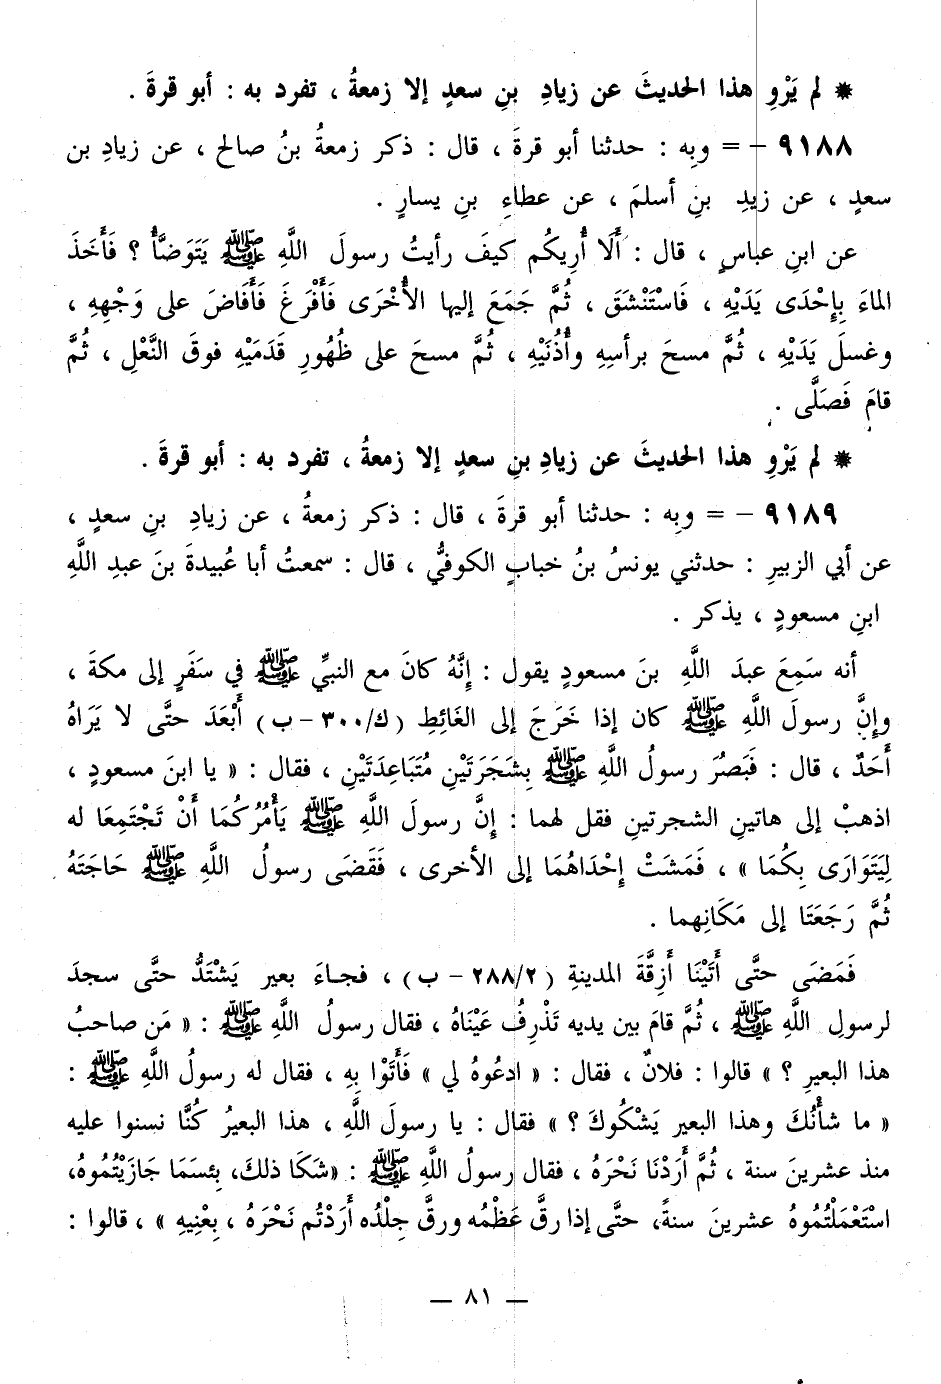 * لم يَرْوِ هذا الحديثَ عن زيادِ بنِ سعدٍ إلا زمعةُ ، تفرد به : أبو قرةَ .
٩١٨٨ – = وبِه : حدثنا أبو قرةَ ، قال : ذكر زمعةُ بنُ صالح ، عن زيادِ بن
سعدٍ ، عن زيدِ بنِ أسلمَ ، عن عطاءِ بنِ يسارٍ .
عن ابنِ عباسٍ ، قال : أَلَا أُرِيكُم كيفَ رأيتُ رسولَ اللَّهِ ﷺ يَتَوَضَّأُ ؟ فَأَخَذَ
الماءَ بِإِحْدَى يَدَيْهِ ، فَاسْتَنْشَقَ ، ثُمَّ جَمَعَ إليها الأُخْرَى فَأَفْرَغَ فَأَفَاضَ على وَجْهِهِ ،
وغسلَ يَدَيْهِ ، ثُمَّ مسحَ برأسِهِ وأُذُنَيْهِ ، ثُمَّ مسحَ على ظُهُورِ قَدَمَيْهِ فوقَ النَّعْلِ ، ثُمَّ
قامَ فَصَلَّى .
* لم يَرْوِ هذا الحديثَ عن زيادِ بنِ سعدٍ إلا زمعةُ ، تفرد به : أبو قرةَ .
٩١٨٩ – = وبِه : حدثنا أبو قرةَ ، قال : ذكر زمعةُ ، عن زيادِ بنِ سعدٍ ،
عن أبي الزبيرِ : حدثني يونسُ بنُ خبابٍ الكوفيُّ ، قال : سمعتُ أبا عُبيدةَ بنَ عبدِ اللَّهِ
ابنِ مسعودٍ ، يذكر .
أنه سَمِعَ عبدَ اللَّهِ بنَ مسعودٍ يقول : إِنَّهُ كانَ مع النبيِّ ﷺ في سَفَرٍ إلى مكةَ ،
وإِنَّ رسولَ اللَّهِ ﷺ كان إذا خَرَجَ إلى الغَائِطِ (ك/٣٠٠ – ب) أَبْعَدَ حتَّى لا يَرَاهُ
أَحَدٌ ، قال : فَبَصُرَ رسولُ اللَّهِ ﷺ بِشَجَرَتَيْنِ مُتَبَاعِدَتَيْنِ ، فقال : « يا ابنَ مسعودٍ ،
اذهبْ إلى هاتينِ الشجرتينِ فقل لهما : إِنَّ رسولَ اللَّهِ ﷺ يَأْمُرُكُمَا أَنْ تَجْتَمِعَا له
لِيَتَوَارَى بِكُمَا » ، فَمَشَتْ إِحْدَاهُمَا إلى الأخرى ، فَقَضَى رسولُ اللَّهِ ﷺ حَاجَتَهُ
ثُمَّ رَجَعَتَا إلى مَكَانِهما .
فَمَضَى حتَّى أَتَيْنَا أَزِقَّةَ المدينةِ (٢٨٨/٢ – ب) ، فجاءَ بعير يَشْتَدُّ حتَّى سجدَ
لرسولِ اللَّهِ ﷺ ، ثُمَّ قامَ بين يديه تَذْرِفُ عَيْنَاهُ ، فقال رسولُ اللَّهِ ﷺ : « مَن صاحبُ
هذا البعيرِ ؟ » قالوا : فلانٌ ، فقال : « ادعُوهُ لي » فَأَتَوْا بِهِ ، فقال له رسولُ اللَّهِ ﷺ :
« ما شأْنُكَ وهذا البعير يَشْكُوكَ ؟ » فقال : يا رسولَ اللَّهِ ، هذا البعيرُ كُنَّا نسنوا عليه
منذ عشرينَ سنة ، ثُمَّ أَرَدْنَا نَحْرَهُ ، فقال رسولُ اللَّهِ ﷺ : «شَكَا ذلكَ، بِئسَمَا جَازَيْتُمُوهُ،
اسْتَعْمَلْتُمُوهُ عشرينَ سنةً، حتَّى إذا رقَّ عَظْمُه ورقَّ جِلْدُه أَرَدْتُم نَحْرَهُ ، بِعْنِيهِ » ، قالوا :
— ٨١ —